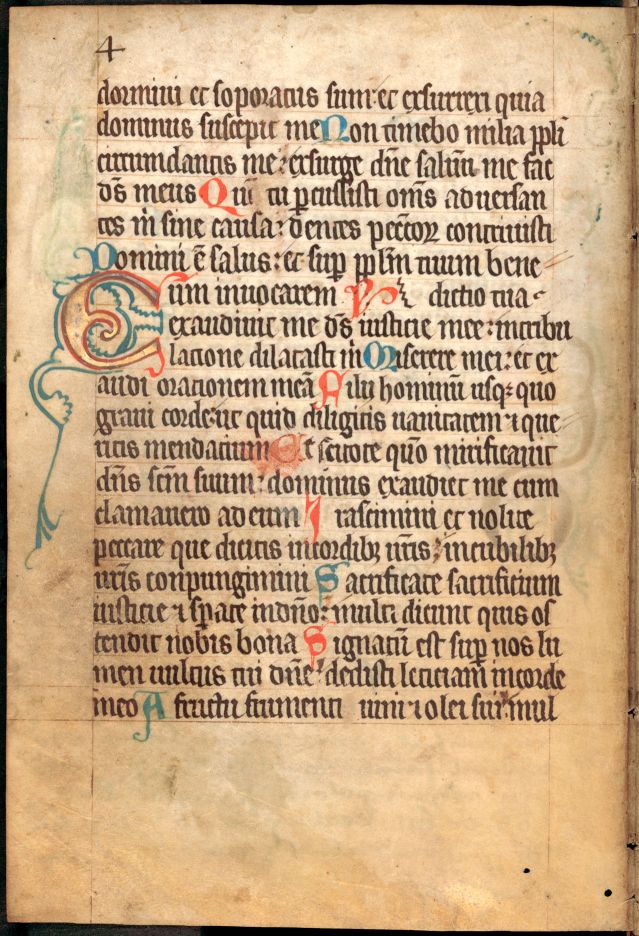 4
dormiui et soporatus sum: et exsurrexi quia
dominus suscepit me Non timebo milia ppli
circumdantis me: exsurge dn̄e saluū me fac
ds̄ meus Qm̄ tu pcussisti om̄s aduersan
tes m̄ sine causa: dentes pecc̄oꝝ contriuisti
Domini ē salus: et sup pplm̄ tuum bene
Cum inuocarem Ps dictio tua
exaudiuit me ds̄ iusticie mee: in tribu
lacione dilatasti m̄ Miserere mei: et ex
audi orationem meā Filii hominū usq; quo
graui corde: ut quid diligitis uanitatem ⁊ que
ritis mendatium Et scitote quō mirificauit
dn̄s sc̄m suum: dominus exaudiet me cum
clamauero ad eum Irascimini et nolite
peccare que dicitis in cordibꝫ ur̄is: in cubilibꝫ
ur̄is conpungimini Sacrificate sacrificium
iusticie ⁊ sp̄ate in dn̄o: multi dicunt quis os
tendit nobis bona Signatū est sup nos lu
men uultus tui dn̄e: dedisti leticiam in corde
meo A fructu frumenti uini ⁊ olei sui: mul